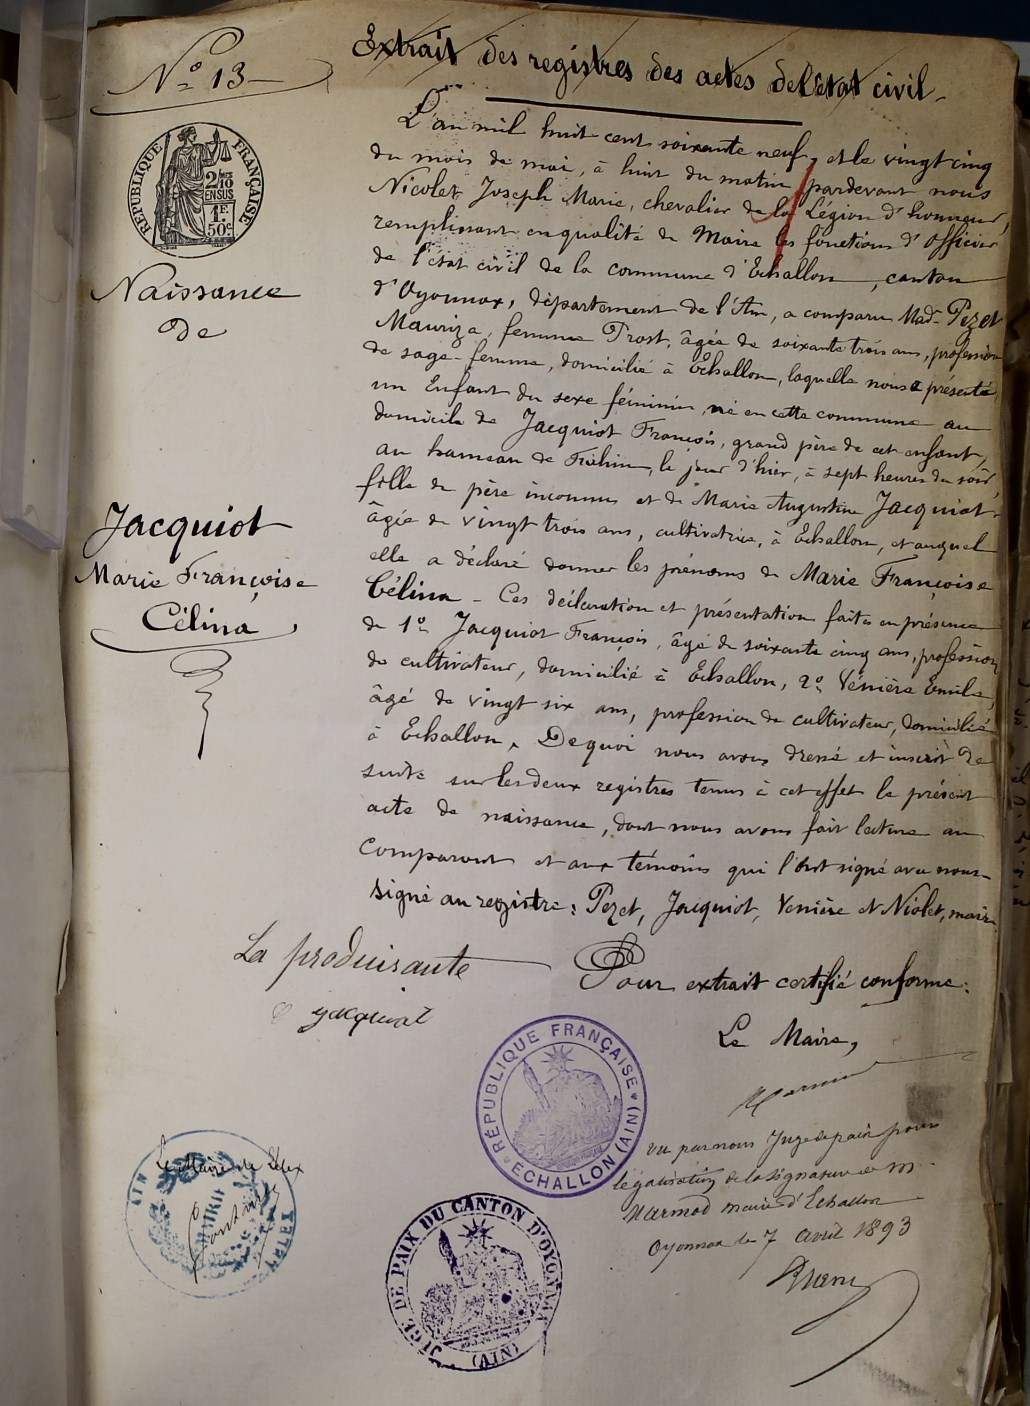 Extrait des registres des actes de l'état civil.
N° 13
RÉPUBLIQUE FRANÇAISE
2/10
EN SUS
1F.
50c.
Naissance
De
Jacquiot
Marie Françoise
Célina
L'an mil huit cent soixante neuf, et le vingt cinq
du mois de mai, à huit du matin, pardevant nous
Nicolet Joseph Marie, chevalier de la Légion d'honneur,
remplissant en qualité de Maire les fonctions d'officier
de l'état civil de la commune d'Echallon, canton
d'Oyonnax, département de l'Ain, a comparu Made Pezet
Mauriza, femme Prost, âgée de soixante trois ans, profession
de sage-femme, domicilié à Echallon, laquelle nous a présenté
un Enfant du sexe féminin, né en cette commune au
domicile de Jacquiot François, grand père de cet enfant,
au hameau de le jour d'hier, à sept heures du soir,
fille de père inconnu et de Marie Augustine Jacquiot
âgée de vingt trois ans, cultivatrice, à Echallon, et auquel
elle a déclaré donner les prénoms de Marie Françoise
Célina - Ces déclaration et présentation faites en présence
de 1° Jacquiot François, âgé de soixante cinq ans, profession
de cultivateur, domicilié à Echallon, 2° Vénière Emile,
âgé de vingt six ans, profession de cultivateur, domicilié
à Echallon. De quoi nous avons dressé et inscrit de
suite sur les deux registres tenus à cet effet le présent
acte de naissance, dont nous avons fait lecture au
comparant et aux témoins qui l'ont signé avec nous-
signé au registre: Pezet, Jacquiot, Venière et Niolet, maire.
La produisante
Jacquiot
Pour extrait certifié conforme:
Le Maire,
RÉPUBLIQUE FRANÇAISE
ECHALLON (AIN)
Vu par nous Juge de paix pour
légalisation de la signature de M.
Marmod maire d'Echallon
Oyonnax le 7 avril 1893
Le Maire de Lélex
MAIRIE
AIN
JUGE DE PAIX DU CANTON D'OYONNAX
(AIN)